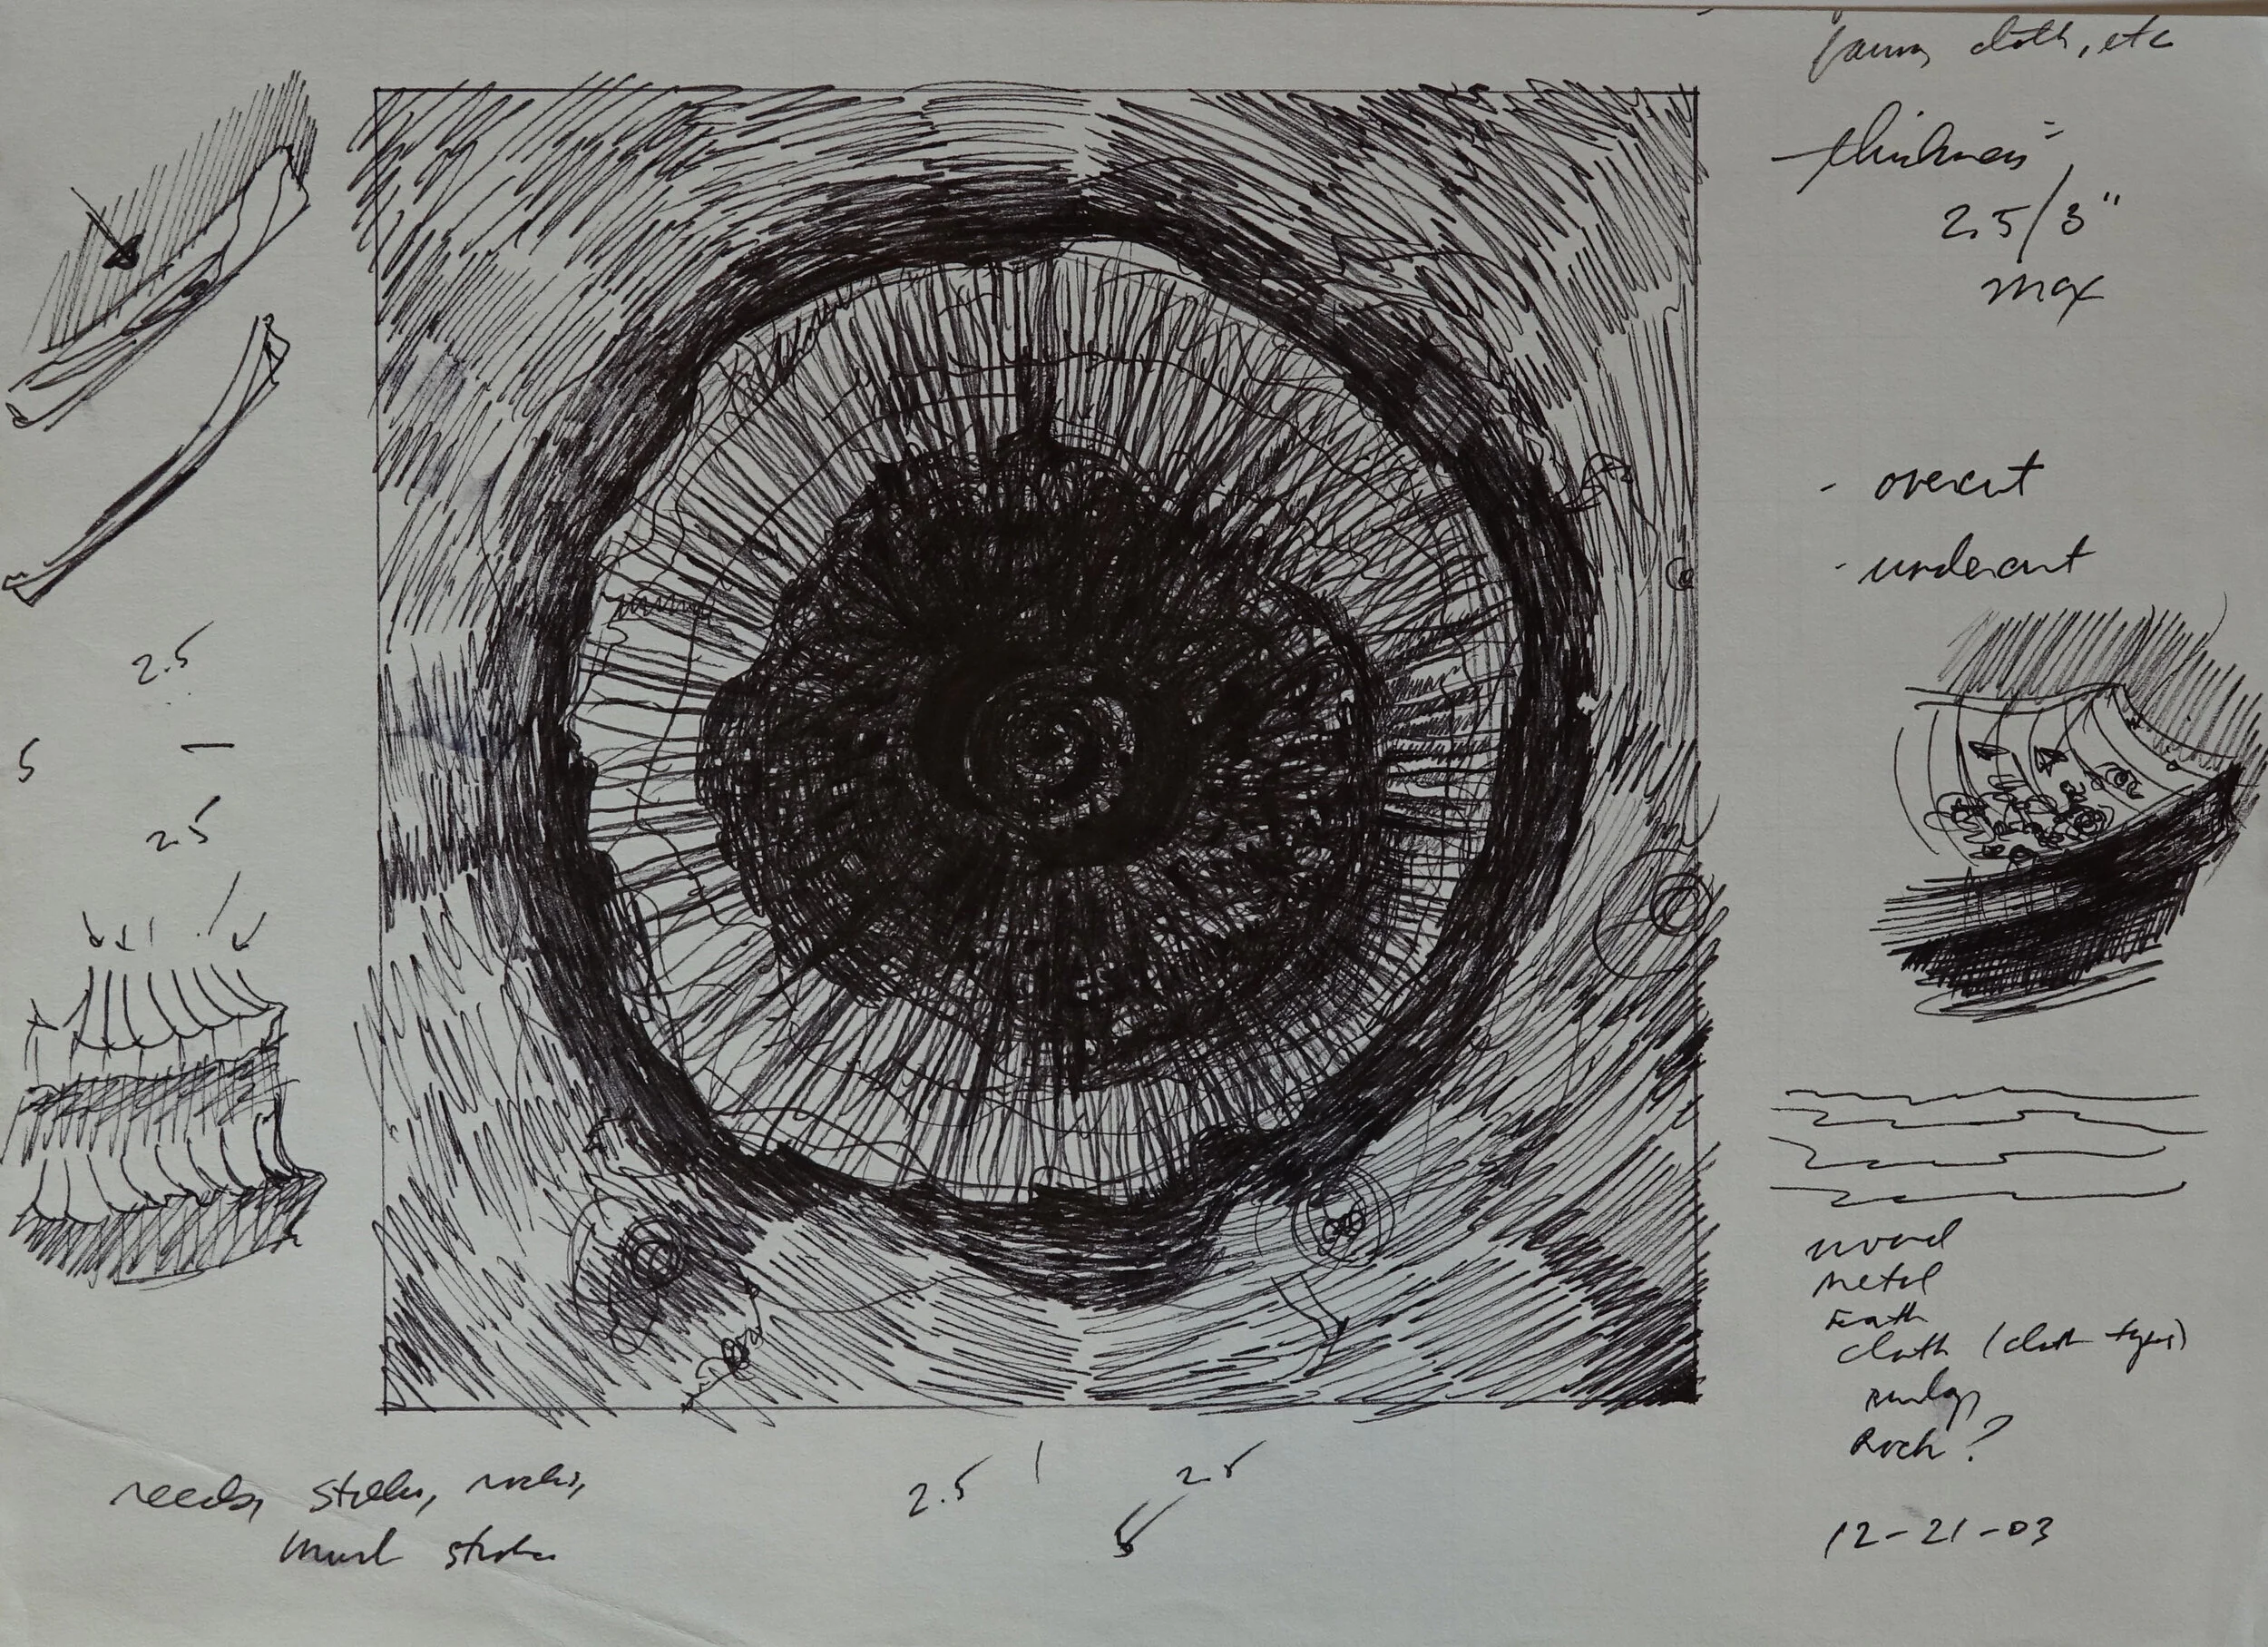 cloth, etc
thickness =
2.5/3"
max
- overcut
- undercut
2.5
5 —
2.5
wood
metal
Earth
cloth (cloth types)
Rock?
12-21-03
reeds, sticks, rocks,
2.5 | 2.5
5